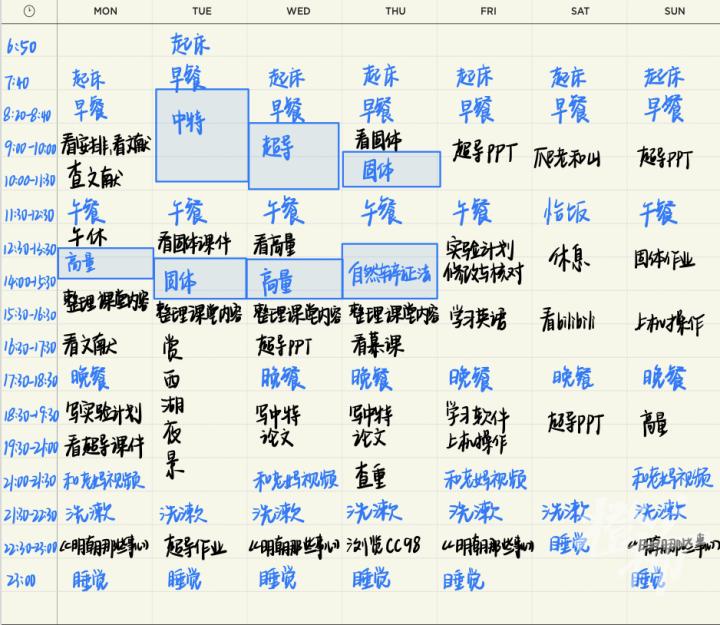 MON TUE WED THU FRI SAT SUN
6:50 起床
7:40 起床 早餐 起床 起床 起床 起床 起床
8:20-8:40 早餐 中特 早餐 早餐 早餐 早餐 早餐
9:00-10:00 看安排,看文献 超导 看固体 超导PPT 爬老和山 超导PPT
10:00-11:30 查文献 固体
11:30-12:30 午餐 午餐 午餐 午餐 午餐 恰饭 午餐
午休
12:30-13:30 高量 看固体课件 看高量 实验计划 休息 固体作业
14:00-15:30 固体 高量 自然辩证法 修改与核对
15:30-16:30 整理课堂内容 整理课堂内容 整理课堂内容 整理课堂内容 学习英语 看bilibili 上机操作
16:30-17:30 看文献 赏 超导PPT 看慕课
17:30-18:30 晚餐 西 晚餐 晚餐 晚餐 晚餐 晚餐
18:30-19:30 写实验计划 湖 写中特 写中特 学习软件 超导PPT 高量
19:30-21:00 看超导课件 夜 论文 论文 上机操作
21:00-21:30 和老妈视频 景 和老妈视频 查重 和老妈视频 和老妈视频
21:30-22:30 洗漱 洗漱 洗漱 洗漱 洗漱 洗漱 洗漱
22:30-23:00 《明朝那些事儿》 超导作业 《明朝那些事儿》 浏览CC98 《明朝那些事儿》 睡觉 《明朝那些事儿》
23:00 睡觉 睡觉 睡觉 睡觉 睡觉 睡觉